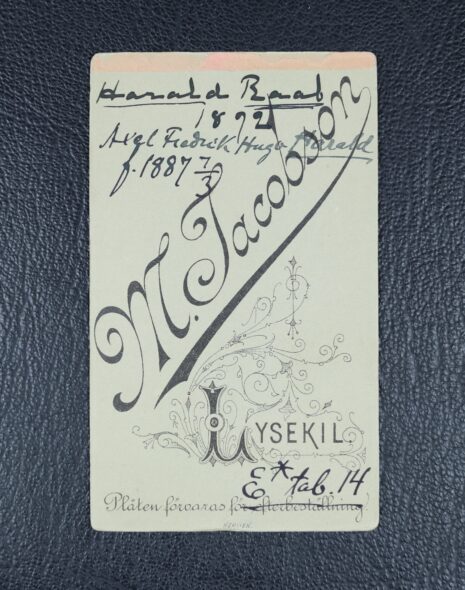 Harald Raab
1892
Axel Fredrik Hugo Harald
f. 1887 7/3
M. Jacobson
LYSEKIL.
E* tab. 14
Plåten förvaras för efterbeställning.